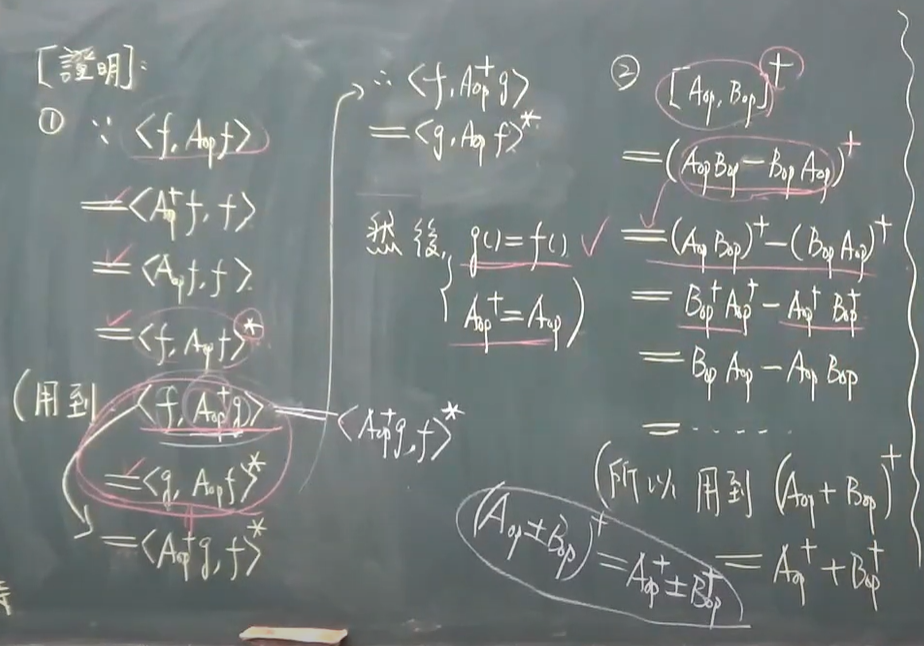 [證明]:
① ∵ <f, A_op f>
= <A_op† f, f>
= <A_op f, f>
= <f, A_op f>*
(用到 <f, A_op† g> = <A_op† g, f>*
= <g, A_op f>*
= <A_op† g, f>*
∵ <f, A_op† g>
= <g, A_op f>*
然後, { g() = f() ✓
A_op† = A_op )
② [A_op, B_op]†
= (A_op B_op − B_op A_op)†
= (A_op B_op)† − (B_op A_op)†
= B_op† A_op† − A_op† B_op†
= B_op A_op − A_op B_op
= ......
(所以 用到 (A_op + B_op)†
= A_op† + B_op†
(A_op ± B_op)† = A_op† ± B_op†